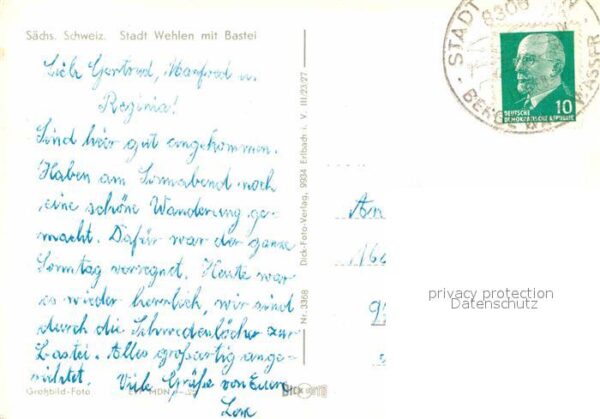 Sächs. Schweiz. Stadt Wehlen mit Bastei
Liebe Gertrud, Manfred u.
Regina!
Sind hier gut angekommen.
Haben am Sonnabend noch
eine schöne Wanderung ge-
macht. Dafür war der ganze
Sonntag verregnet. Heute war
es wieder herrlich, wir sind
durch die Schwedenlöcher zur
Bastei. Alles großartig einge-
richtet. Viele Grüße von Euren
Großbild-Foto
Dick-Foto-Verlag, 9934 Erlbach i. V. III/23/27
Nr. 3368
STADT
8306
BERGE WALD WASSER
10
DEUTSCHE
DEMOKRATISCHE REPUBLIK
An
privacy protection
Datenschutz